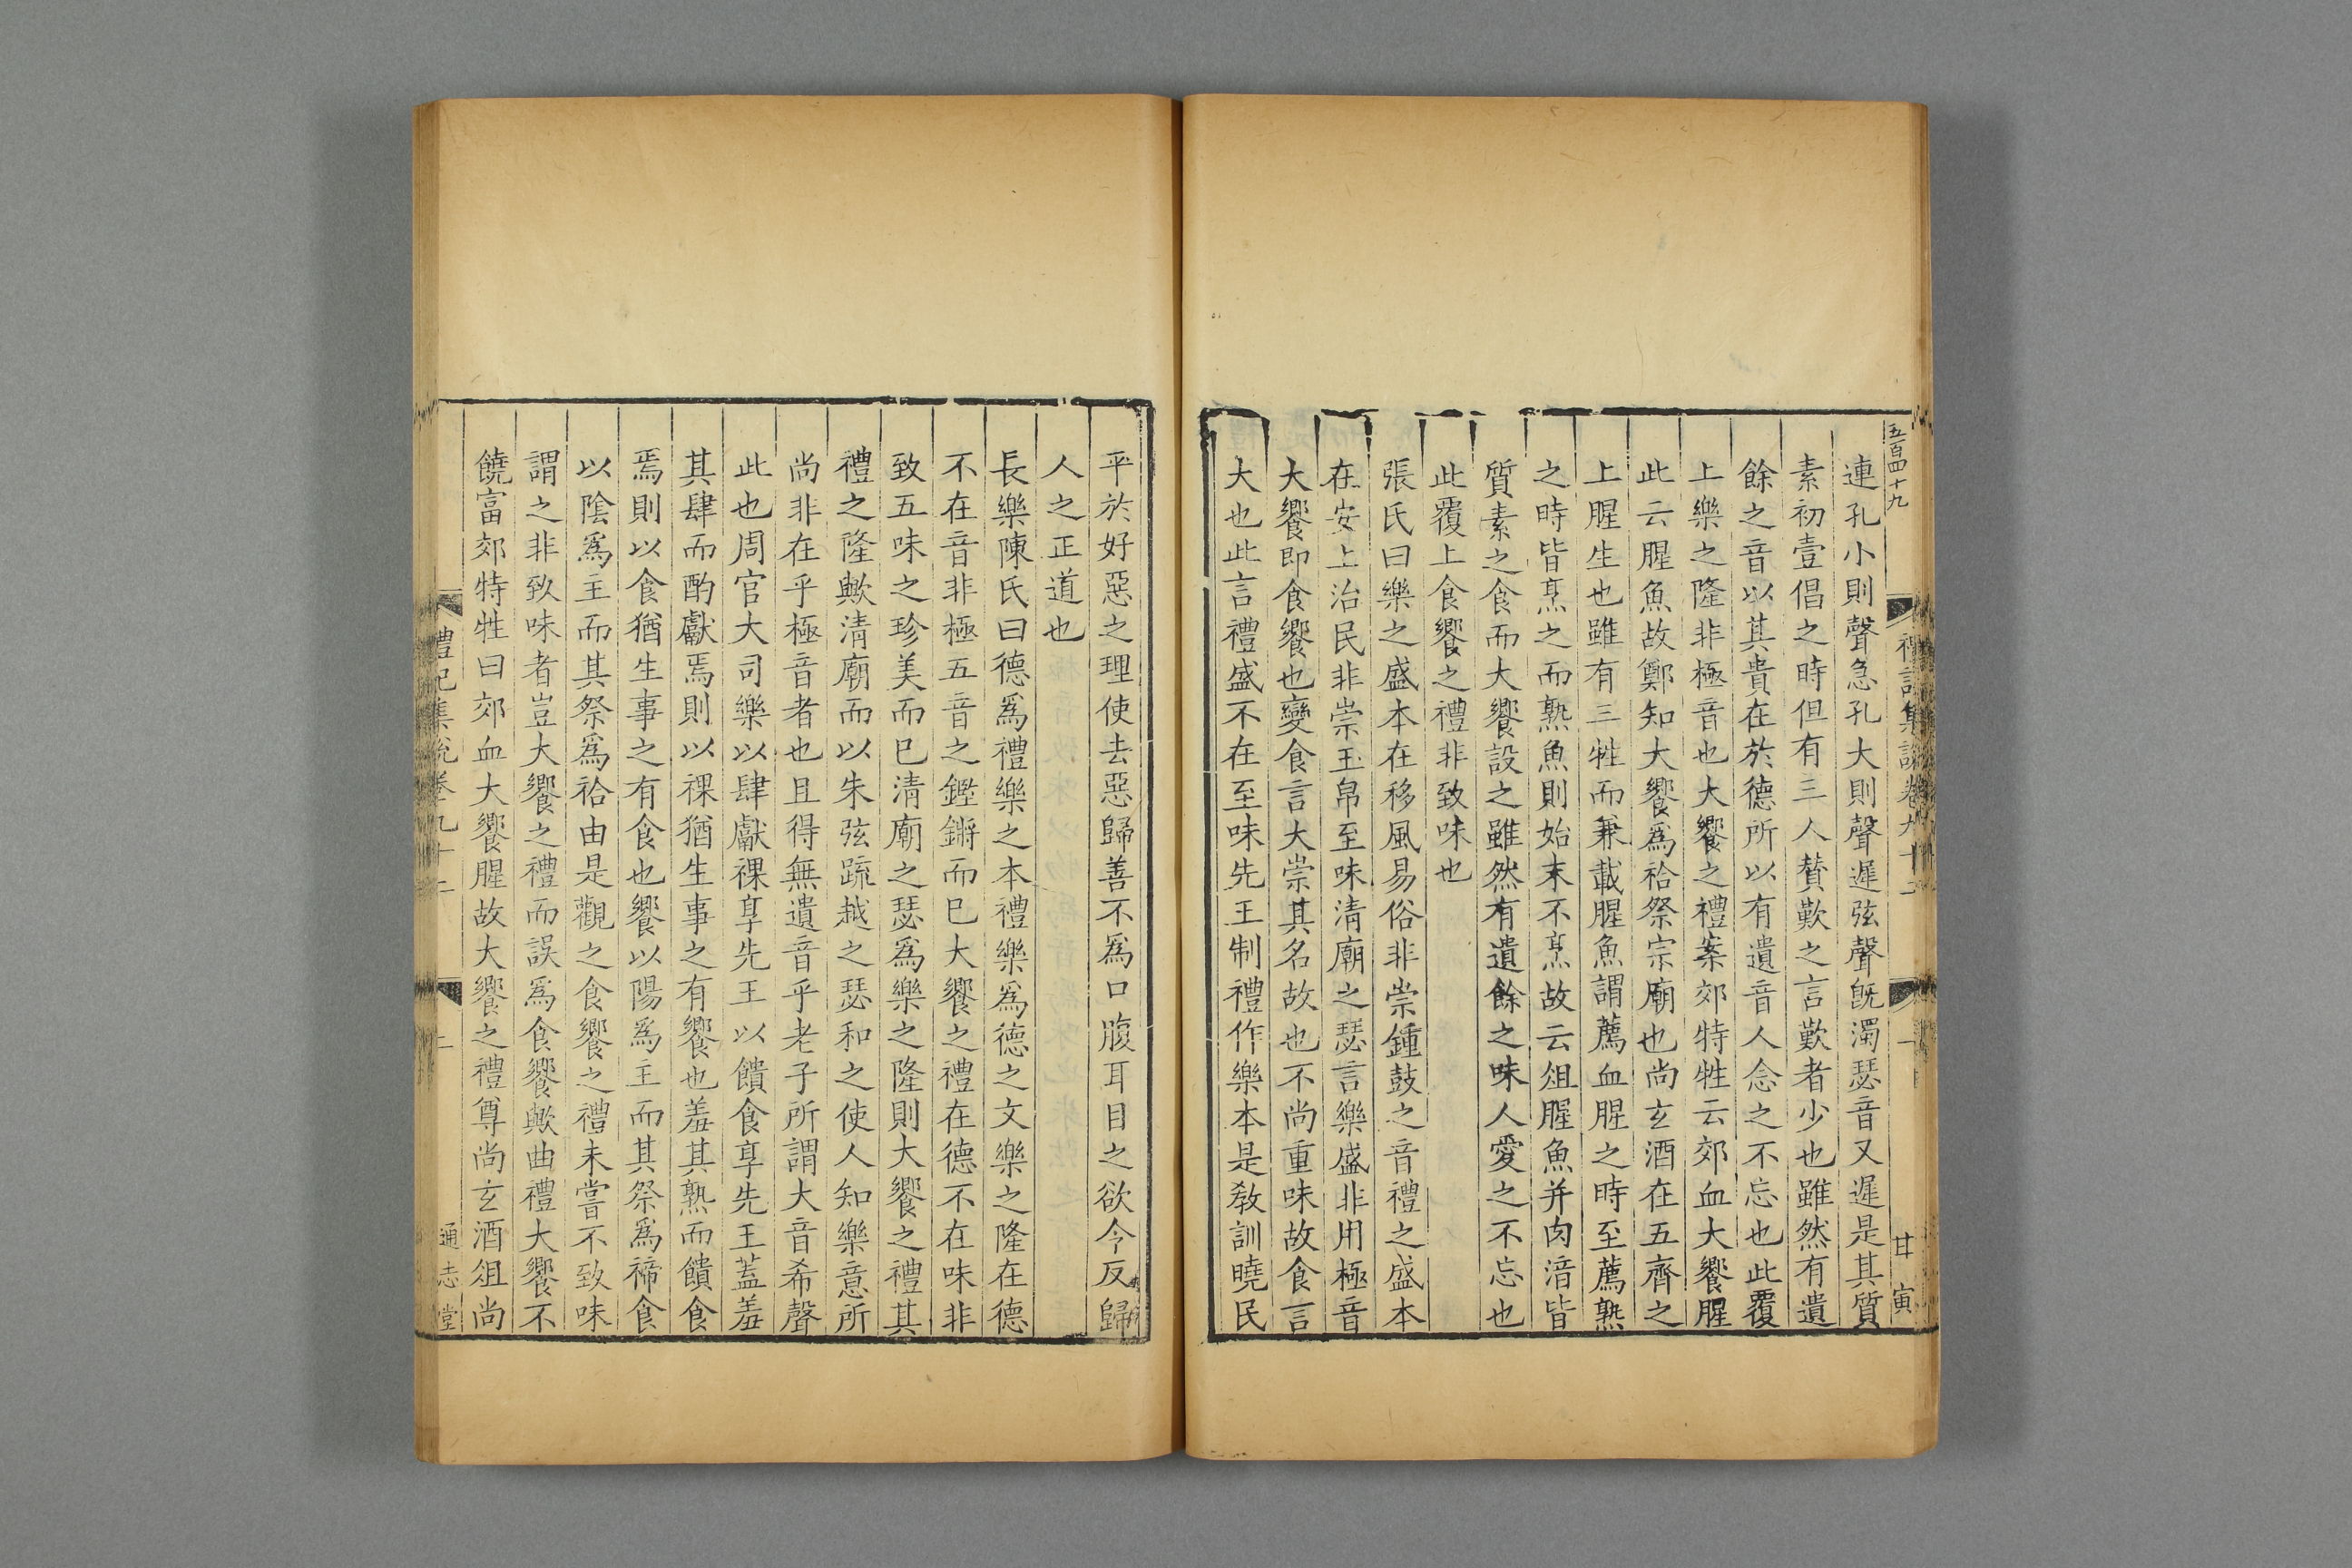 五百四十九
禮記集說卷九十二
一
甘寅
連孔小則聲急孔大則聲遲弦聲旣濁瑟音又遲是其質
素初壹倡之時但有三人賛歎之言歎者少也雖然有遺
餘之音以其貴在於德所以有遺音人念之不忘也此覆
上樂之隆非極音也大饗之禮案郊特牲云郊血大饗腥
此云腥魚故鄭知大饗爲祫祭宗廟也尚玄酒在五齊之
上腥生也雖有三牲而兼載腥魚謂薦血腥之時至薦熟
之時皆烹之而熟魚則始末不烹故云俎腥魚并肉湆皆
質素之食而大饗設之雖然有遺餘之味人愛之不忘也
此覆上食饗之禮非致味也
張氏曰樂之盛本在移風易俗非崇鍾鼓之音禮之盛本
在安上治民非崇玉帛至味清廟之瑟言樂盛非用極音
大饗即食饗也變食言大崇其名故也不尚重味故食言
大也此言禮盛不在至味先王制禮作樂本是敎訓曉民
平於好惡之理使去惡歸善不爲口腹耳目之欲令反歸
人之正道也
長樂陳氏曰德爲禮樂之本禮樂爲德之文樂之隆在德
不在音非極五音之鏗鏘而已大饗之禮在德不在味非
致五味之珍美而已清廟之瑟爲樂之隆則大饗之禮其
禮之隆歟清廟而以朱弦疏越之瑟和之使人知樂意所
尚非在乎極音者也且得無遺音乎老子所謂大音希聲
此也周官大司樂以肆獻祼享先王以饋食享先王蓋羞
其肆而酌獻焉則以祼猶生事之有饗也羞其熟而饋食
焉則以食猶生事之有食也饗以陽爲主而其祭爲禘食
以陰爲主而其祭爲祫由是觀之食饗之禮未嘗不致味
謂之非致味者豈大饗之禮而誤爲食饗歟曲禮大饗不
饒富郊特牲曰郊血大饗腥故大饗之禮尊尚玄酒俎尚
禮記集說卷九十二
二
通志堂